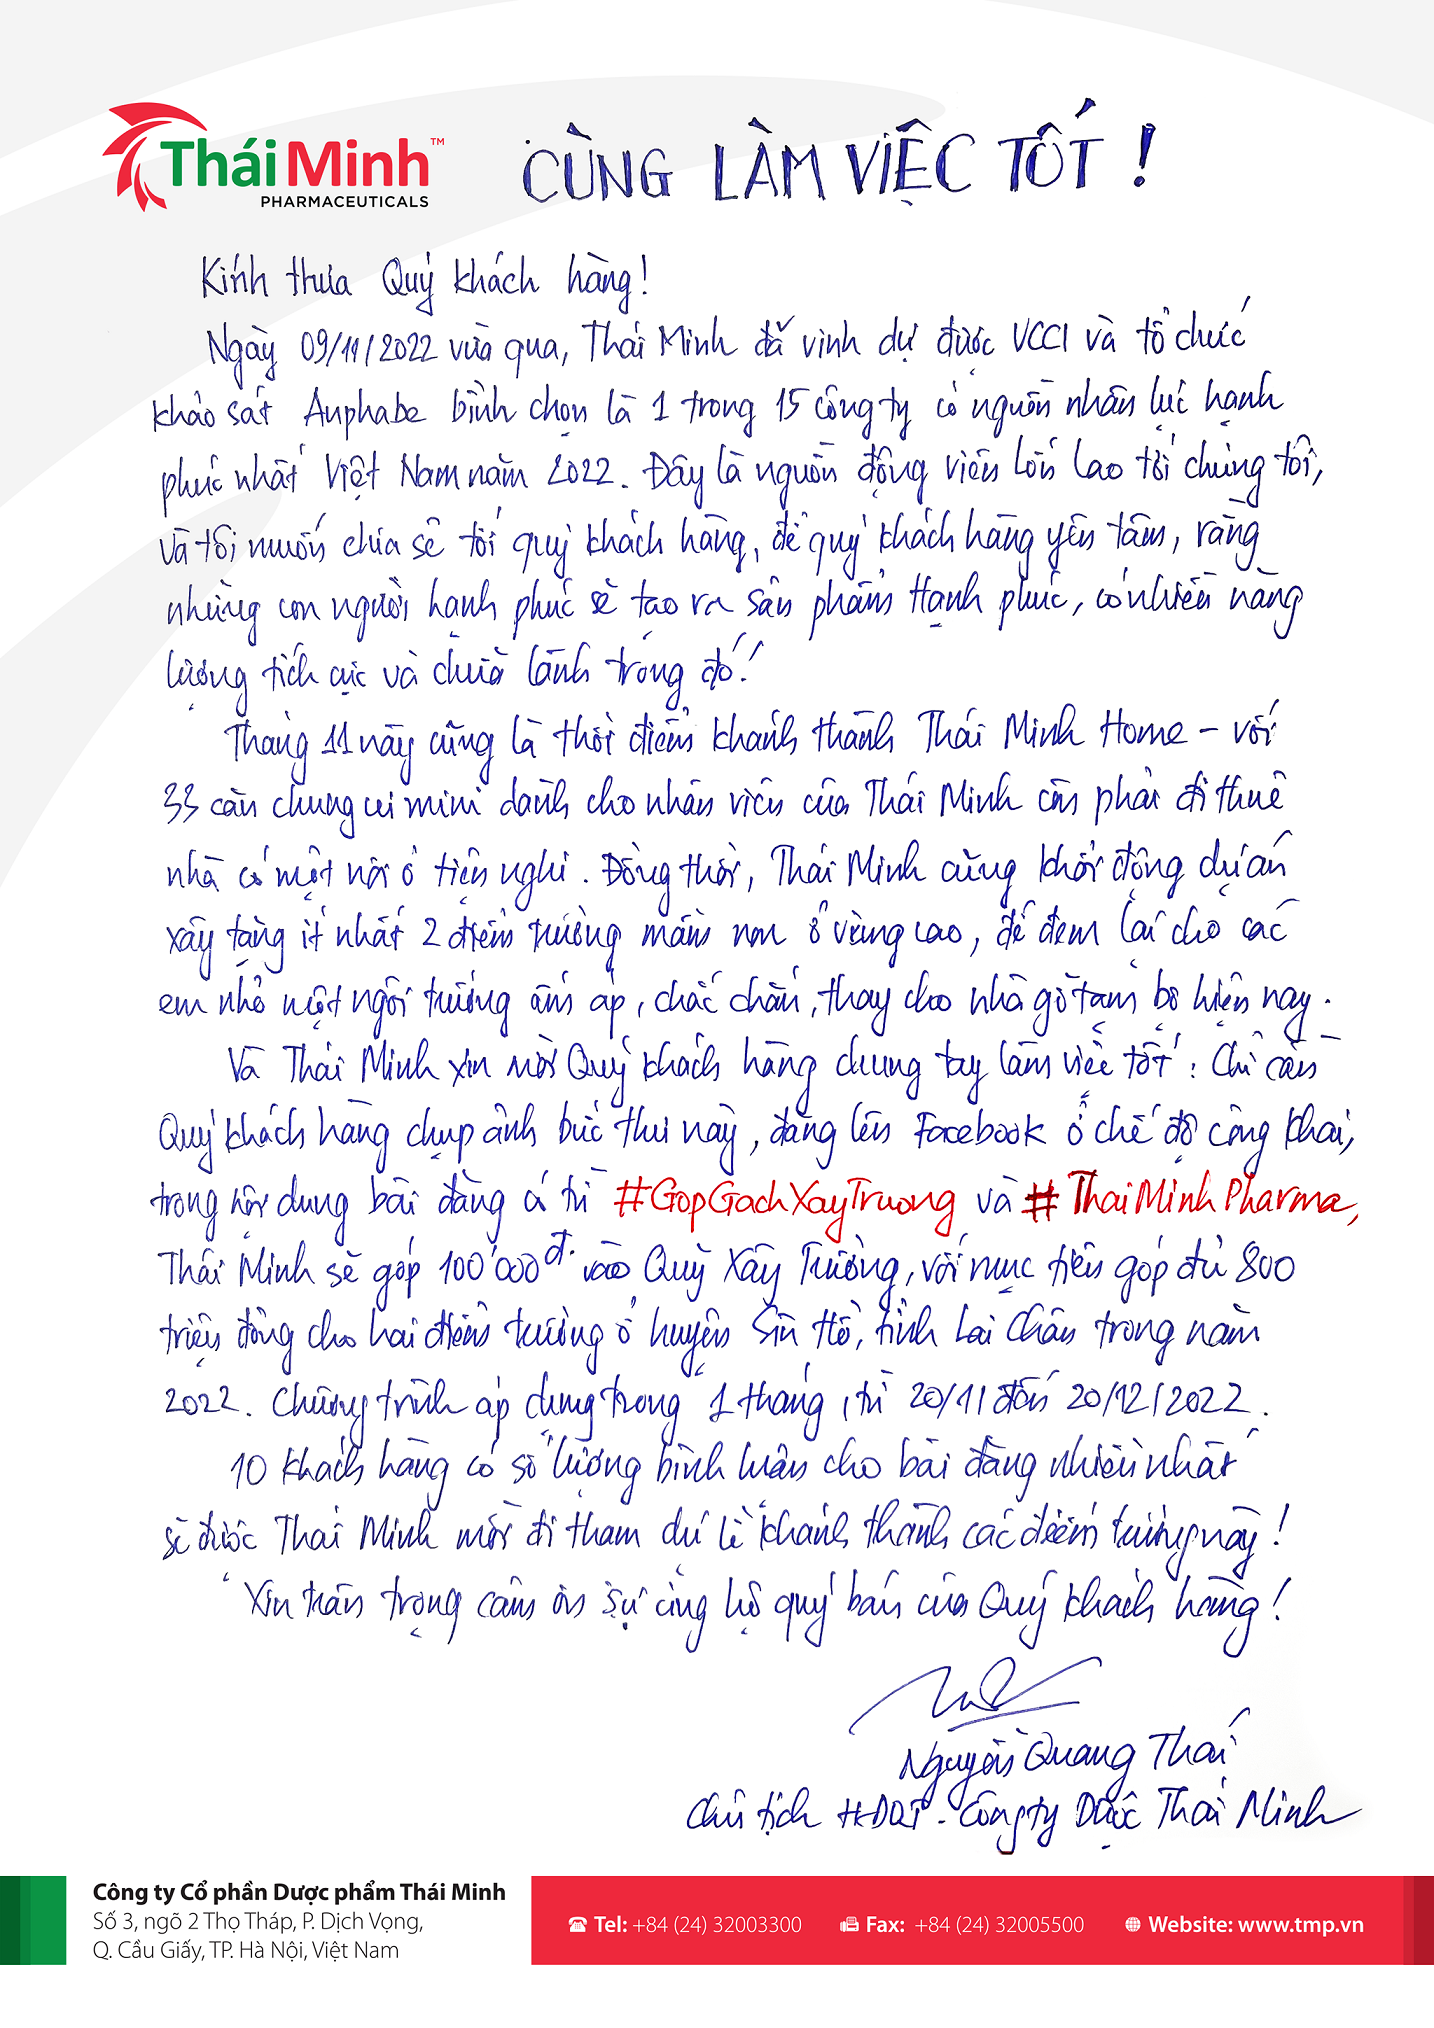 Thái Minh™
PHARMACEUTICALS
CÙNG LÀM VIỆC TỐT !
Kính thưa Quý khách hàng!
Ngày 09/11/2022 vừa qua, Thái Minh đã vinh dự được VCCI và tổ chức
khảo sát Anphabe bình chọn là 1 trong 15 công ty có nguồn nhân lực hạnh
phúc nhất Việt Nam năm 2022. Đây là nguồn động viên lớn lao tới chúng tôi,
và tôi muốn chia sẻ tới quý khách hàng, để quý khách hàng yên tâm, rằng
những con người hạnh phúc sẽ tạo ra sản phẩm Hạnh phúc, có nhiều năng
lượng tích cực và chữa lành trong đó!
Tháng 11 này cũng là thời điểm khánh thành Thái Minh Home - với
33 căn chung cư mini dành cho nhân viên của Thái Minh còn phải đi thuê
nhà có một nơi ở tiện nghi. Đồng thời, Thái Minh cũng khởi động dự án
xây tặng ít nhất 2 điểm trường mầm non ở vùng cao, để đem lại cho các
em nhỏ một ngôi trường ấm áp, chắc chắn, thay cho nhà gỗ tạm bợ hiện nay.
Và Thái Minh xin mời Quý khách hàng chung tay làm việc tốt: Chỉ cần
Quý khách hàng chụp ảnh bức thư này, đăng lên Facebook ở chế độ công khai,
trong nội dung bài đăng có từ #GopGachXayTruong và #ThaiMinhPharma,
Thái Minh sẽ góp 100'000đ. vào Quỹ Xây Trường, với mục tiêu góp đủ 800
triệu đồng cho hai điểm trường ở huyện Sìn Hồ, tỉnh Lai Châu trong năm
2022. Chương trình áp dụng trong 1 tháng, từ 20/11 đến 20/12/2022.
10 khách hàng có số lượng bình luận cho bài đăng nhiều nhất
sẽ được Thái Minh mời đi tham dự lễ khánh thành các điểm trường này!
Xin trân trọng cảm ơn sự ủng hộ quý báu của Quý khách hàng!
Nguyễn Quang Thái
Chủ tịch HĐQT - Công ty Dược Thái Minh
Công ty Cổ phần Dược phẩm Thái Minh
Số 3, ngõ 2 Thọ Tháp, P. Dịch Vọng,
Q. Cầu Giấy, TP. Hà Nội, Việt Nam
Tel: +84 (24) 32003300 Fax: +84 (24) 32005500 Website: www.tmp.vn